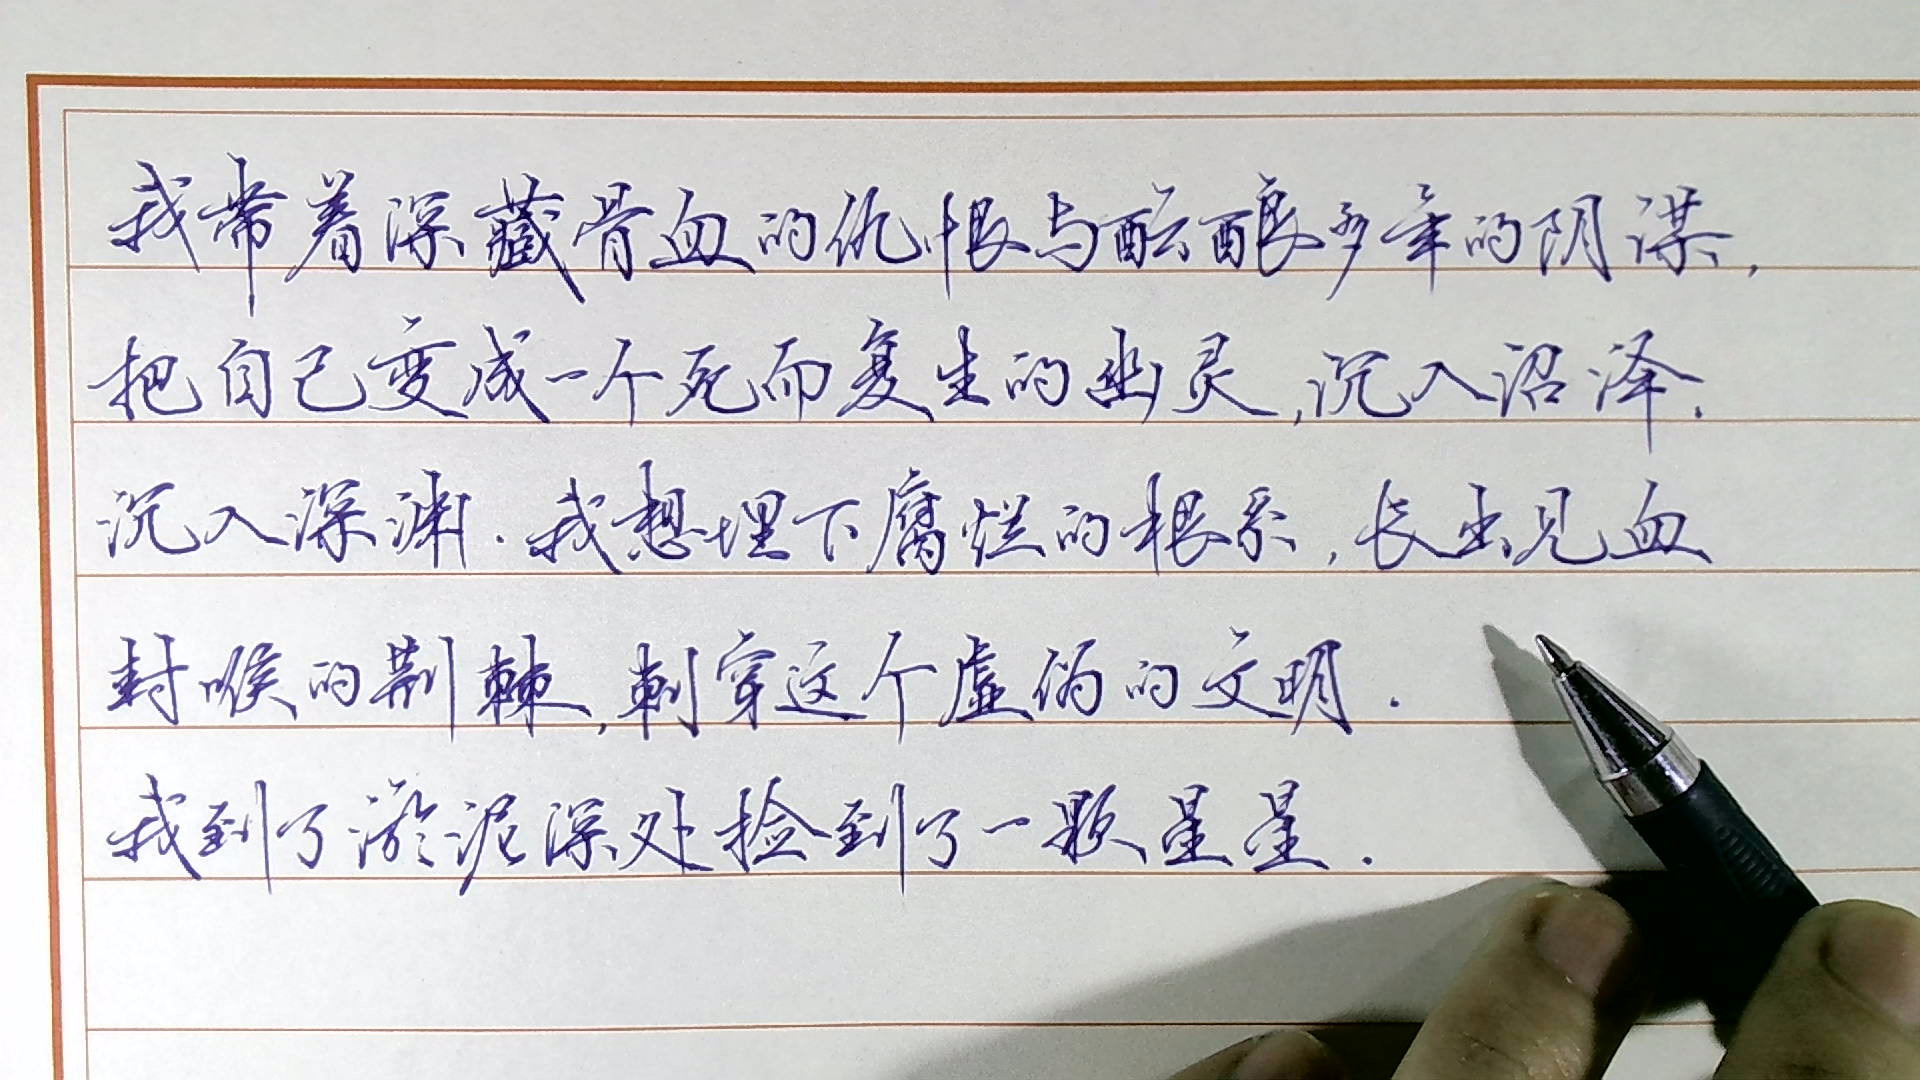 我带着深藏骨血的仇恨与酝酿多年的阴谋，
把自己变成一个死而复生的幽灵，沉入沼泽，
沉入深渊．我想埋下腐烂的根系，长出见血
封喉的荆棘，刺穿这个虚伪的文明．
我到了淤泥深处捡到了一颗星星．